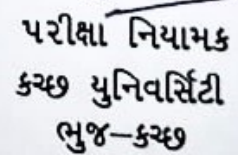 પરીક્ષા નિયામક
કચ્છ યુનિવર્સિટી
ભુજ–કચ્છ